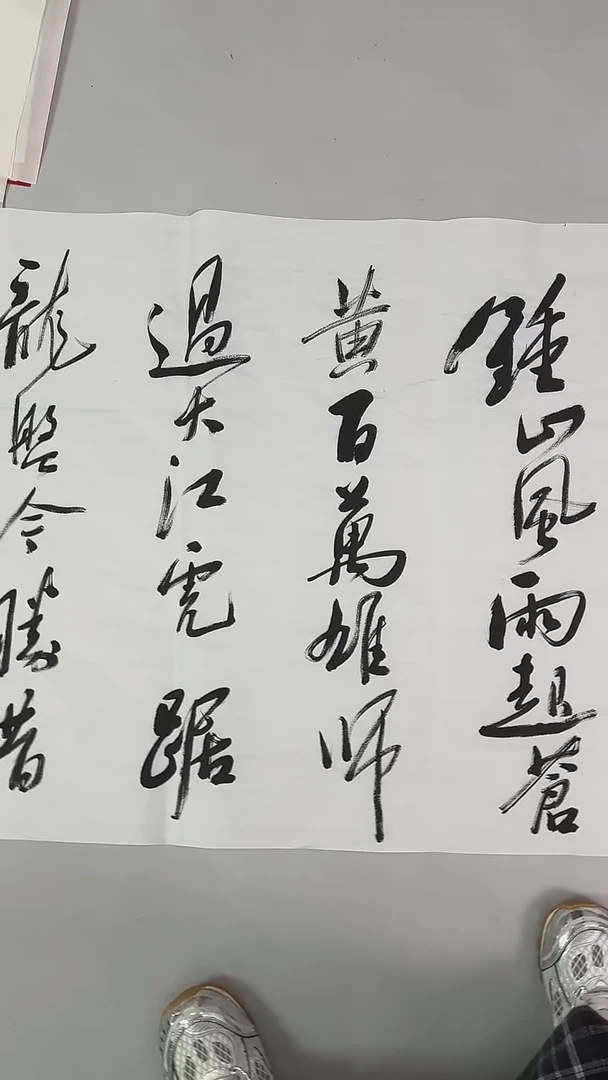 鍾山風雨起蒼
黄百萬雄师
過大江虎踞
龍盤今勝昔